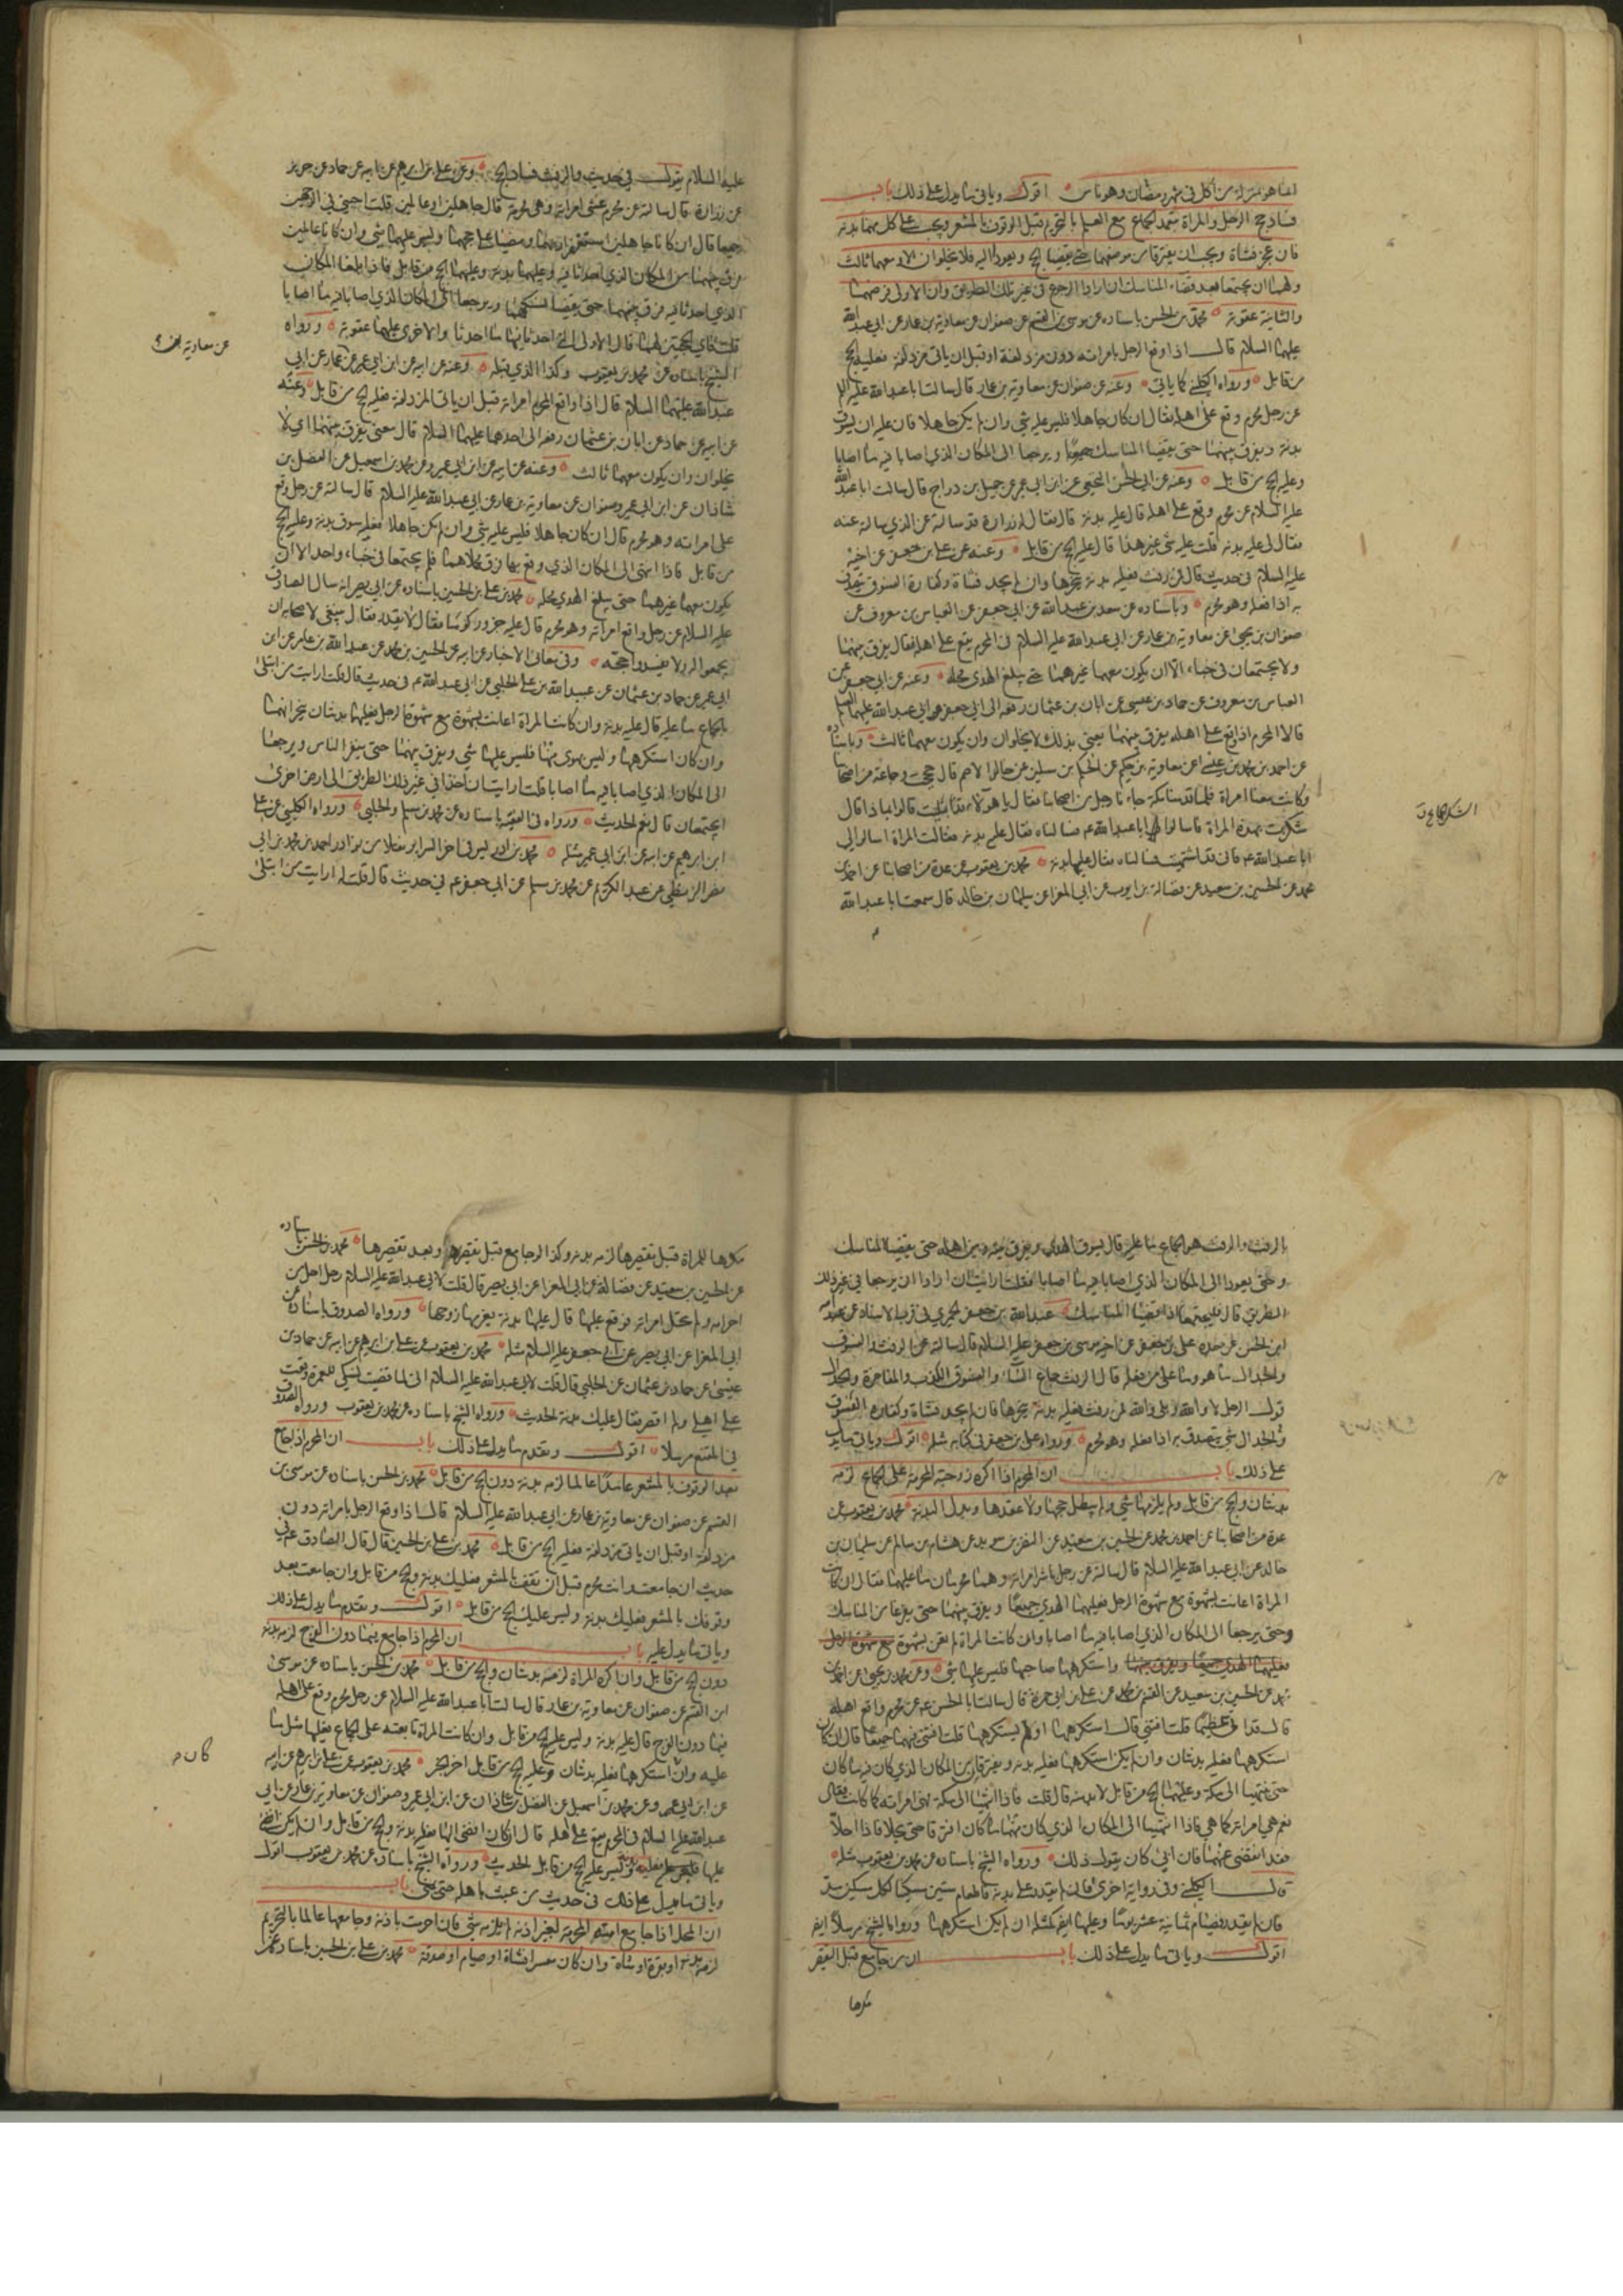 انما هو بمنزلة من اكل في شهر رمضان وهو ناس اقول وياتي ما يدل على ذلك باب
فساد حج الرجل والمراة بتعمد الجماع مع العلم بالتحريم قبل الوقوف بالمشعر ويجب على كل منهما بدنة
فان عجز فشاة ويجب ان يفترقا من موضعهما حتى يقضيا الحج ويعودا اليه فلا يخلوان الا ومعهما ثالث
ولهما ان يجتمعا بعد قضاء المناسك ان ارادا الرجوع في غير تلك الطريق وان الاولى فرضهما
والثانية عقوبة محمد بن الحسن باسناده عن موسى بن القسم عن صفوان عن معاوية بن عمار عن ابي عبد الله
عليهما السلام قال اذا وقع الرجل بامراته دون مزدلفة او قبل ان ياتي مزدلفة فعليه الحج
من قابل ورواه الكليني كما ياتي وعنه عن صفوان عن معاوية بن عمار قال سالت ابا عبد الله عليه السلام
عن رجل محرم وقع على اهله فقال ان كان جاهلا فليس عليه شي وان لم يكن جاهلا فان عليه ان يسوق
بدنة ويفرق بينهما حتى يقضيا المناسك جميعا ويرجعا الى المكان الذي اصابا فيه ما اصابا
وعليه الحج من قابل وعنه عن ابي الحسن النخعي عن ابن ابي عمير عن جميل بن دراج قال سالت ابا عبد الله
عليه السلام عن محرم وقع على اهله قال عليه بدنة قال فقال له زرارة قد سالته عن الذي سالته عنه
فقال لي عليه بدنة قلت عليه شي غير هذا قال عليه الحج من قابل وعنه عن علي بن جعفر عن اخيه
عليه السلام في حديث قال فمن رفث فعليه بدنة ينحرها وان لم يجد فشاة وكفارة الفسوق يتصدق
به اذا فعله وهو محرم وباسناده عن سعد بن عبد الله عن ابي جعفر عن العباس بن معروف عن
صفوان بن يحيى عن معاوية بن عمار عن ابي عبد الله عليه السلام في المحرم يقع على اهله فقال يفرق بينهما
ولا يجتمعان في خباء الا ان يكون معهما غيرهما حتى يبلغ الهدي محله وعنه عن ابي جعفر عن
العباس بن معروف عن حماد بن عيسى عن ابان بن عثمان رفعه الى ابي جعفر وابي عبد الله عليهما السلام
قالا المحرم اذا وقع على اهله يفرق بينهما يعني بذلك لا يخلوان وان يكون معهما ثالث وباسناده
عن احمد بن محمد بن عيسى عن معاوية بن حكيم عن الحكم بن مسكين عن خالد الاصم قال حججت وجماعة من اصحابنا
وكانت معنا امراة فلما قدمنا مكة جاءنا رجل من اصحابنا فقال يا هؤلاء قد بليت قالوا بماذا قال
شكرت بهذه المراة فاسالوا ابا عبد الله ع فسالناه فقال عليه بدنة فقالت المراة اسالوا لي
ابا عبد الله ع فاني قد اشتهيت فسالناه فقال عليها بدنة محمد بن يعقوب عن عدة من اصحابنا عن احمد بن
محمد عن الحسين بن سعيد عن فضالة بن ايوب عن ابي المغرا عن سليمان بن خالد قال سمعت ابا عبد الله
الشكر الجماع ق
عليه السلام يقول في حديث والرفث فساد الحج وعن علي بن ابرهيم عن ابيه عن حماد عن حريز
عن زرارة قال سالته عن محرم غشي امراته وهي محرمة قال جاهلين او عالمين قلت اجبني في الوجهين
جميعا قال ان كانا جاهلين استغفرا ربهما ومضيا على حجهما وليس عليهما شي وان كانا عالمين
فرق بينهما من المكان الذي احدثا فيه وعليهما بدنة وعليهما الحج من قابل فاذا بلغا المكان
الذي احدثا فيه فرق بينهما حتى يقضيا نسكهما ويرجعا الى المكان الذي اصابا فيه ما اصابا
قلت فاي الحجتين لهما قال الاولى التي احدثا فيها ما احدثا والاخرى عليهما عقوبة ورواه
الشيخ باسناده عن محمد بن يعقوب وكذا الذي قبله وعنه عن ابيه عن ابن ابي عمير عن عمار عن ابي
عبد الله عليهما السلام قال اذا واقع المحرم امراته قبل ان ياتي المزدلفة فعليه الحج من قابل وعنه
عن ابيه عن حماد عن ابان بن عثمان رفعه الى احدهما عليهما السلام قال معنى يفرق بينهما اي لا
يخلوان وان يكون معهما ثالث وعنه عن ابيه عن ابن ابي عمير وعن محمد بن اسمعيل عن الفضل بن
شاذان عن ابن ابي عمير وصفوان عن معاوية بن عمار عن ابي عبد الله عليه السلام قال سالته عن رجل وقع
على امراته وهو محرم قال ان كان جاهلا فليس عليه شي وان لم يكن جاهلا فعليه سوق بدنة وعليه الحج
من قابل فاذا انتهى الى المكان الذي وقع بها فرق محملاهما فلم يجتمعا في خباء واحد الا ان
يكون معهما غيرهما حتى يبلغ الهدي محله محمد بن علي بن الحسين باسناده عن ابي بصير انه سال الصادق
عليه السلام عن رجل واقع امراته وهو محرم قال عليه جزور كوماء فقال لا يقدر فقال ينبغي لاصحابه ان
يجمعوا له ولا يفسدوا حجه وفي معاني الاخبار عن ابيه عن الحسين بن محمد عن عبد الله بن عامر عن ابن
ابي عمير عن حماد بن عثمان عن عبيد الله بن علي الحلبي عن ابي عبد الله ع في حديث قال قلت ارايت من ابتلى
بالجماع ما عليه قال عليه بدنة وان كانت المراة اعانت بشهوة مع شهوة الرجل فعليهما بدنتان ينحرانهما
وان كان استكرهها وليس بهوى منها فليس عليها شي ويفرق بينهما حتى ينفر الناس ويرجعا
الى المكان الذي اصابا فيه ما اصابا قلت ارايت ان اخذا في غير ذلك الطريق الى ارض اخرى
ايجتمعان قال نعم الحديث ورواه في الفقيه باسناده عن محمد بن مسلم والحلبي ورواه الكليني عن علي
ابن ابرهيم عن ابيه عن ابن ابي عمير مثله محمد بن ادريس في اخر السرائر نقلا من نوادر احمد بن محمد بن ابي
نصر البزنطي عن عبد الكريم عن محمد بن مسلم عن ابي جعفر ع في حديث قال قلت له ارايت من ابتلى
بالرفث والرفث هو الجماع ما عليه قال يسوق الهدي ويفرق بينه وبين اهله حتى يقضيا المناسك
وحتى يعودا الى المكان الذي اصابا فيه ما اصابا فقلت ارايت ان ارادا ان يرجعا في غير ذلك
الطريق قال فليجتمعا اذا قضيا المناسك عبد الله بن جعفر الحميري في قرب الاسناد عن عبد الله
ابن الحسن عن جده علي بن جعفر عن اخيه موسى بن جعفر عليه السلام قال سالته عن الرفث والفسوق
والجدال ما هو وما على من فعله قال الرفث جماع النساء والفسوق الكذب والمفاخرة والجدال
قول الرجل لا والله وبلى والله فمن رفث فعليه بدنة ينحرها فان لم يجد فشاة وكفارة الفسوق
والجدال شي يتصدق به اذا فعله وهو محرم ورواه علي بن جعفر في كتابه مثله اقول وياتي ما يدل
على ذلك باب ان المحرم اذا اكره زوجته المحرمة على الجماع لزمه
بدنتان والحج من قابل ولم يلزمها شي ولم يبطل حجها ولا عقدها وبدل البدنة محمد بن يعقوب عن
عدة من اصحابنا عن احمد بن محمد عن الحسين بن سعيد عن النضر بن سويد عن هشام بن سالم عن سليمان بن
خالد عن ابي عبد الله عليه السلام قال سالته عن رجل باشر امراته وهما محرمان ما عليهما فقال ان كانت
المراة اعانت بشهوة مع شهوة الرجل فعليهما الهدي جميعا ويفرق بينهما حتى يفرغا من المناسك
وحتى يرجعا الى المكان الذي اصابا فيه ما اصابا وان كانت المراة لم تعن بشهوة مع شهوة الرجل
فعليهما الهدي جميعا ويفرق بينهما واستكرهها صاحبها فليس عليها شي وعن محمد بن يحيى عن احمد بن
محمد عن الحسين بن سعيد عن القسم بن محمد عن علي بن ابي حمزة قال سالت ابا الحسن ع عن محرم واقع اهله
قال قد اتى عظيما قلت افتني قال استكرهها او لم يستكرهها قلت افتني فيهما جميعا قال ان كان
استكرهها فعليه بدنتان وان لم يكن استكرهها فعليه بدنة وعليها بدنة ويفترقان من المكان الذي كان فيه ما كان
حتى ينتهيا الى مكة وعليهما الحج من قابل لا بد منه قال قلت فاذا انتهيا الى مكة فهي امراته كما كانت فقال
نعم هي امراته كما هي فاذا انتهيا الى المكان الذي كان منهما ما كان افترقا حتى يحلا فاذا احلا
فقد انقضى عنهما فان ابي كان يقول ذلك ورواه الشيخ باسناده عن محمد بن يعقوب مثله
قال الكليني وفي رواية اخرى فان لم يقدر على بدنة فاطعام ستين مسكينا لكل مسكين مد
فان لم يقدر فصيام ثمانية عشر يوما وعليها ايضا كمثله ان لم يكن استكرهها ورواه الشيخ مرسلا ايضا
اقول وياتي ما يدل على ذلك باب ان من جامع قبل التقصير
مكرها
مكرها للمراة قبل تقصيرها لزمه بدنة وكذا لو جامع قبل تقصيره وبعد تقصيرها محمد بن الحسن باسناده
عن الحسين بن سعيد عن فضالة عن ابي المغرا عن ابي بصير قال قلت لابي عبد الله عليه السلام رجل احل من
احرامه ولم تحل امراته فوقع عليها قال عليها بدنة يغرمها زوجها ورواه الصدوق باسناده عن
ابي المغرا عن ابي بصير عن ابي جعفر عليه السلام مثله محمد بن يعقوب عن علي بن ابرهيم عن ابيه عن حماد بن
عيسى عن حماد بن عثمان عن الحلبي قال قلت لابي عبد الله عليه السلام اني لما قضيت نسكي للعمرة وقعت
على اهلي ولم اقصر فقال عليك بدنة الحديث ورواه الشيخ باسناده عن محمد بن يعقوب ورواه الصدوق
في المقنع مرسلا اقول وتقدم ما يدل على ذلك باب ان المحرم اذا جامع
بعد الوقوف بالمشعر عامدا عالما لزمه بدنة دون الحج من قابل محمد بن الحسن باسناده عن موسى بن
القسم عن صفوان عن معاوية بن عمار عن ابي عبد الله عليه السلام قال اذا وقع الرجل بامراته دون
مزدلفة او قبل ان ياتي مزدلفة فعليه الحج من قابل محمد بن علي بن الحسين قال قال الصادق ع في
حديث ان جامعت وانت محرم قبل ان تقف بالمشعر فعليك بدنة والحج من قابل وان جامعت بعد
وقوفك بالمشعر فعليك بدنة وليس عليك الحج من قابل اقول وتقدم ما يدل على ذلك
وياتي ما يدل عليه باب ان المحرم اذا جامع فيما دون الفرج لزمه بدنة
دون الحج من قابل وان اكره المراة لزمه بدنتان والحج من قابل محمد بن الحسن باسناده عن موسى
ابن القسم عن صفوان عن معاوية بن عمار قال سالت ابا عبد الله عليه السلام عن رجل محرم وقع على اهله
فيما دون الفرج قال عليه بدنة وليس عليه الحج من قابل وان كانت المراة تابعته على الجماع فعليها مثل ما
عليه وان استكرهها فعليه بدنتان وعليه الحج من قابل اخر الخبر محمد بن يعقوب عن علي بن ابرهيم عن ابيه
عن ابن ابي عمير وعن محمد بن اسمعيل عن الفضل بن شاذان عن ابن ابي عمير وصفوان عن معاوية بن عمار عن ابي
عبد الله عليه السلام في المحرم يقع على اهله قال ان كان افضى اليها فعليه بدنة والحج من قابل وان لم يكن افضى
اليها فعليه بدنة وليس عليه الحج من قابل الحديث ورواه الشيخ باسناده عن محمد بن يعقوب اقول
وياتي ما يدل على ذلك في حديث من عبث باهله حتى يمني باب
ان المحل اذا جامع امته المحرمة بغير اذنه لم يلزمه شي فان احرمت باذنه وجامعها عالما بالتحريم
لزمه بدنة او بقرة او شاة وان كان معسرا فشاة او صيام او صدقة محمد بن علي بن الحسين باسناده عن
كان